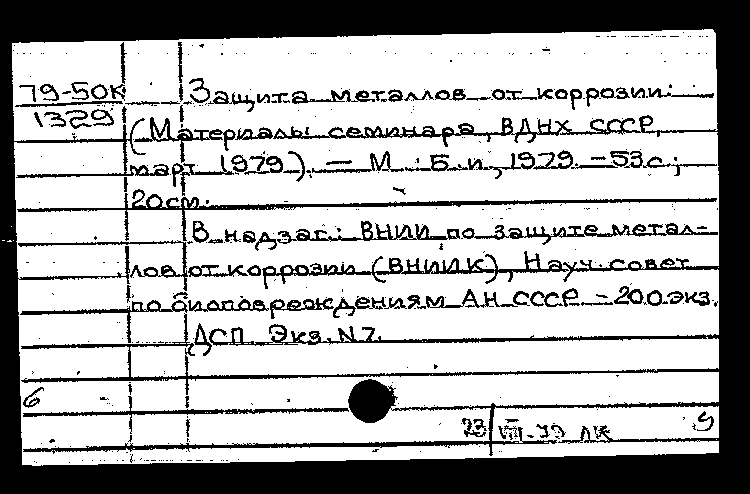 79-50К Защита металлов от коррозии:
1329 (Материалы семинара, ВДНХ СССР,
март 1979). — М.: Б.и., 1979. - 53с.;
20см.
В надзаг.: ВНИИ по защите метал-
лов от коррозии (ВНИИК), Науч. совет
по биоповреждениям АН СССР. - 200 экз.
ДСП. Экз. N 7.
6
23 VIII-79 ЛК